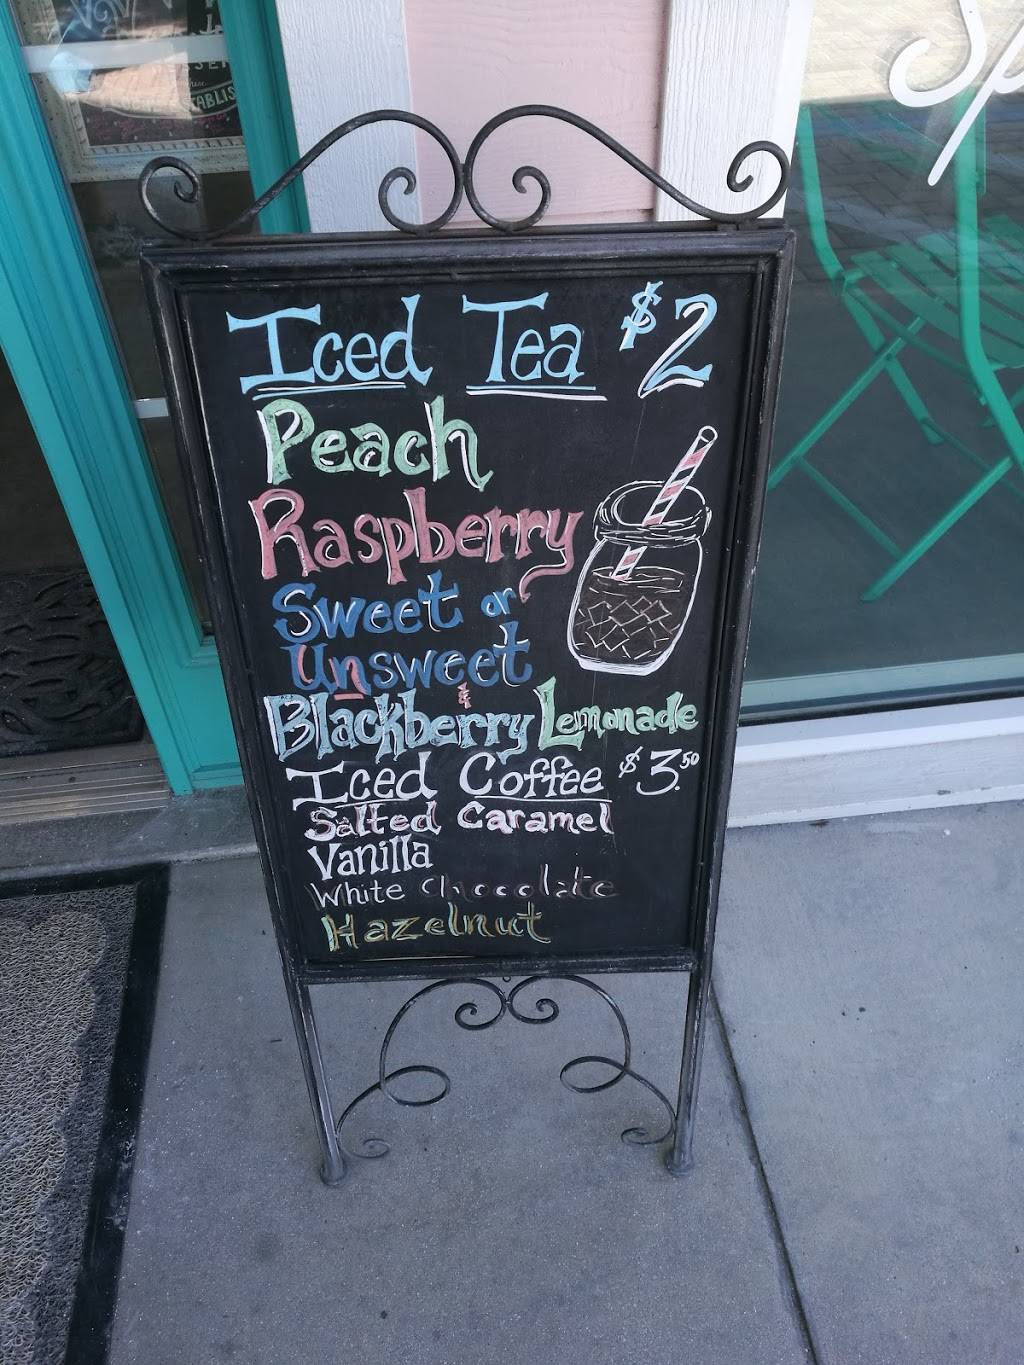 Iced Tea $2
Peach
Raspberry
Sweet or
Unsweet
&
Blackberry Lemonade
Iced Coffee $3.50
Salted Caramel
Vanilla
White Chocolate
Hazelnut